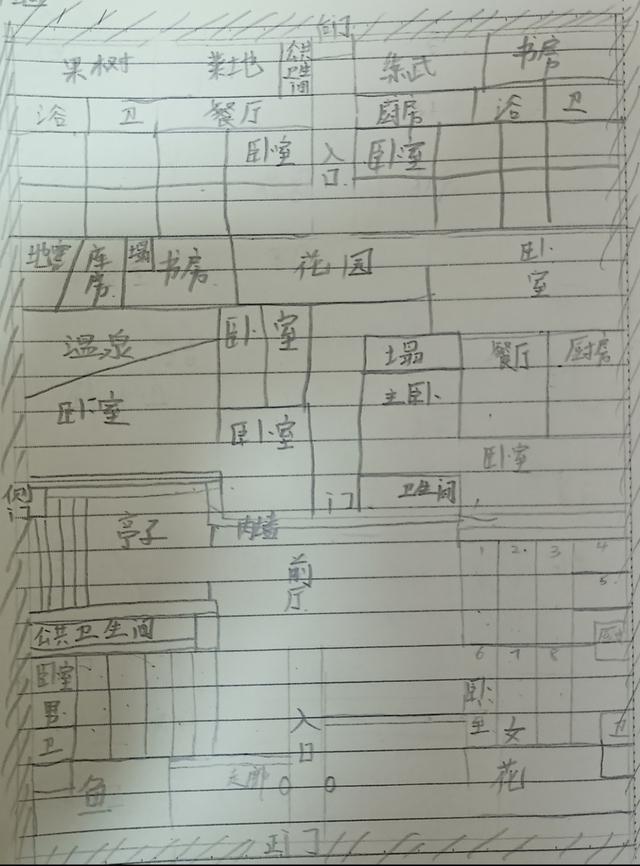 后门
果树 菜地 公共卫生间 练武 书房
浴 卫 餐厅 厨房 浴 卫
卧室 入口 卧室
地窖 库房 塌 书房 花园 卧室
温泉 卧室 塌 餐厅 厨房
卧室 卧室 主卧
卧室
侧门 门 卫生间
亭子 内墙
1 2 3 4
前厅 5
公共卫生间
6 7 8
卧室 卧室
男 入口 女 卫
卫
鱼 走廊 花
正门